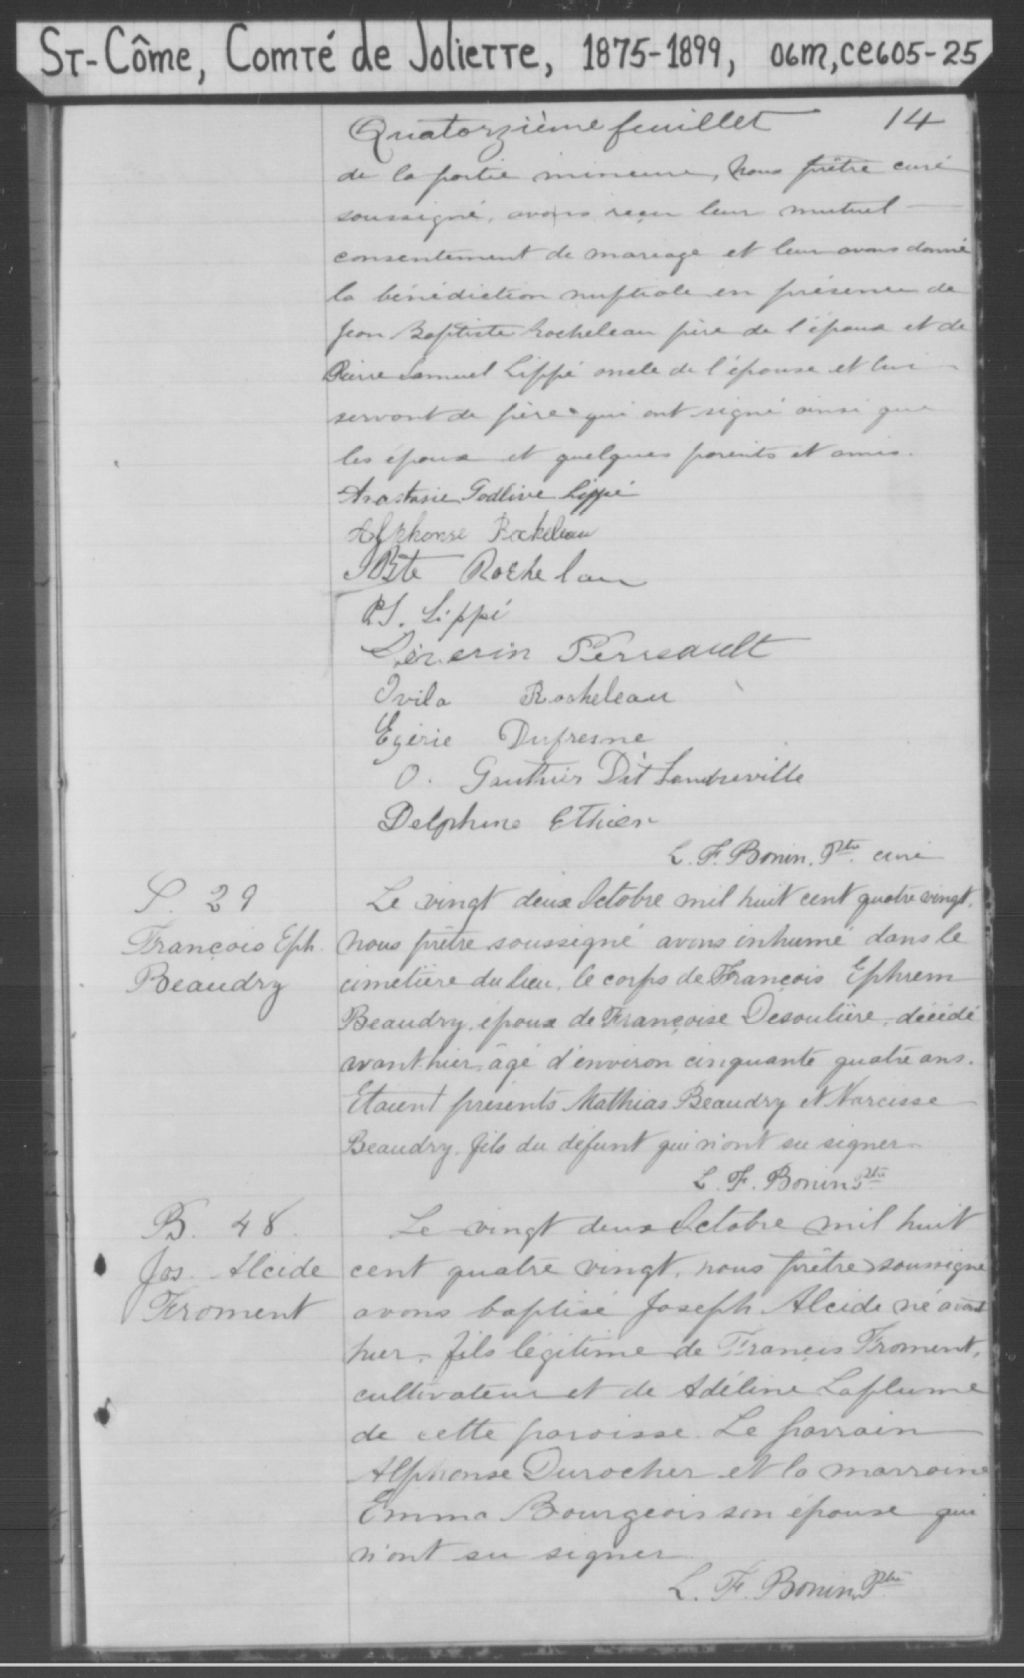 St-Côme, Comté de Joliette, 1875-1899, 06M,CE605-25
Quatorzième feuillet 14
de la partie mineure, Nous prêtre curé
soussigné, avons reçu leur mutuel
consentement de mariage et leur avons donné
la bénédiction nuptiale en présence de
Jean Baptiste Rocheleau père de l'époux et de
Pierre Samuel Lippé oncle de l'épouse et lui
servant de père qui ont signé ainsi que
les époux et quelques parents et amis.
Anastasie Godlive Lippé
Alphonse Rocheleau
JBte Rochelau
P.S. Lippé
Séverin Perreault
Ovila Rocheleau
Egérie Dufresne
O. Gauthier Dit Landreville
Delphine Ethier
L. F. Bonin, Ptre curé
S. 29
François Eph.
Beaudry
Le vingt deux Octobre mil huit cent quatre vingt,
nous prêtre soussigné avons inhumé dans le
cimetière du lieu, le corps de François Ephrem
Beaudry, époux de Françoise Desoulière, décédé
avant hier, âgé d'environ cinquante quatre ans.
Etaient présents Mathias Beaudry et Narcisse
Beaudry, fils du défunt qui n'ont su signer
L. F. Bonin Ptre
B. 48.
Jos. Alcide
Froment
Le vingt deux Octobre mil huit
cent quatre vingt, nous prêtre soussigné
avons baptisé Joseph Alcide né avant
hier, fils légitime de Francis Froment,
cultivateur et de Adéline Laplume
de cette paroisse. Le parrain
Alphonse Durocher et la marraine
Emma Bourgeois son épouse qui
n'ont su signer
L. F. Bonin, Ptre